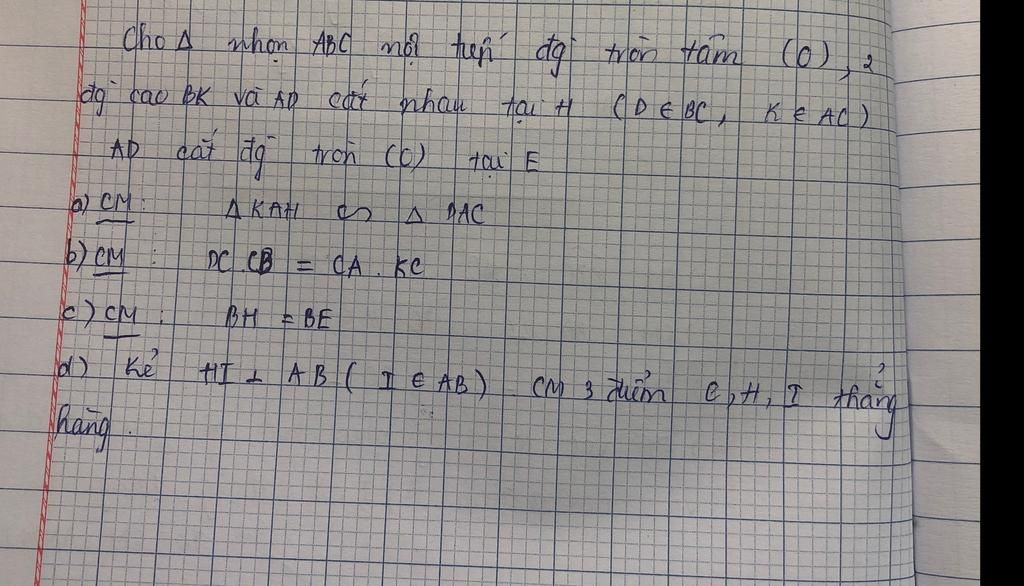 Cho Δ nhọn ABC nội tiếp đg tròn tâm (O), 2
đg cao BK và AD cắt nhau tại H (D ∈ BC, K ∈ AC)
AD cắt đg tròn (O) tại E
a) CM: Δ KAH ∽ Δ DAC
b) CM : DC.CB = CA.KC
c) CM : BH = BE
d) Kẻ HI ⊥ AB ( I ∈ AB) CM 3 điểm C, H, I thẳng
hàng.